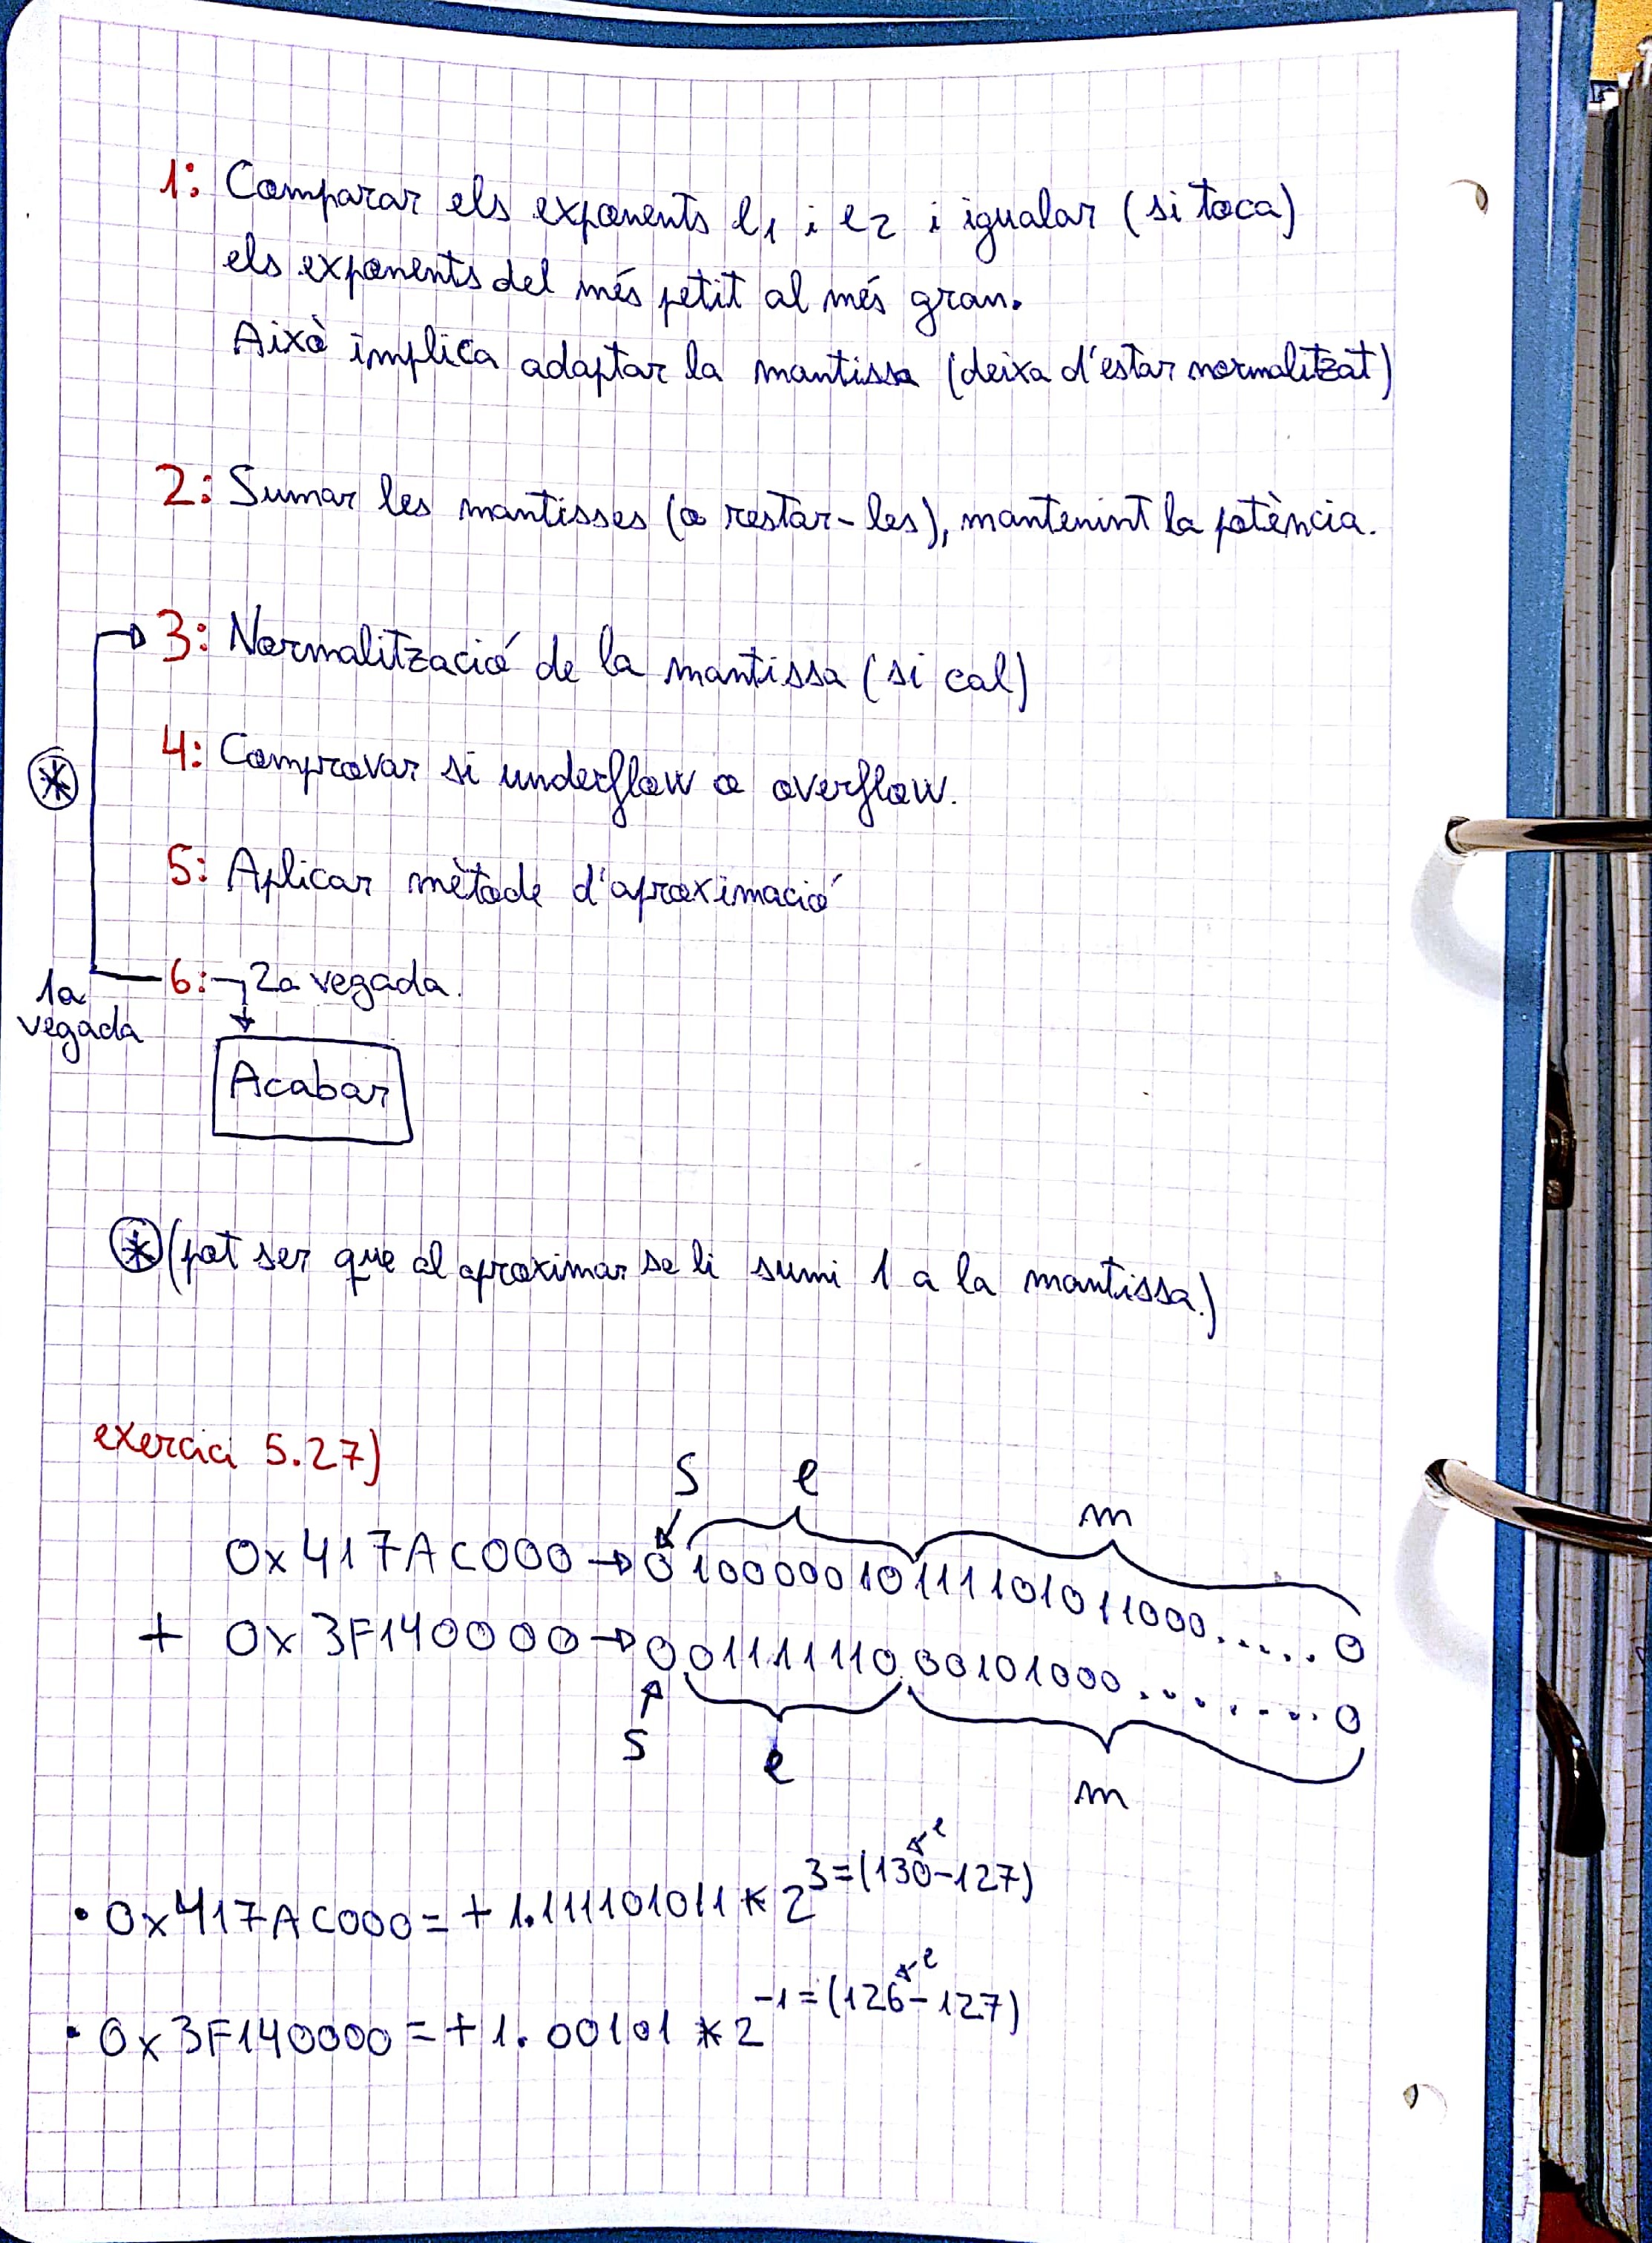 1: Comparar els exponents e1 i e2 i igualar (si toca)
els exponents del més petit al més gran.
Això implica adaptar la mantissa (deixa d'estar normalitzat)
2: Sumar les mantisses (o restar-les), mantenint la potència.
3: Normalització de la mantissa (si cal)
4: Comprovar si underflow o overflow.
5: Aplicar mètode d'aproximació
6: 2a vegada.
1a
vegada
Acabar
(pot ser que al aproximar se li sumi 1 a la mantissa.)
exercici 5.27)
S e m
0x417AC000 → 0100000101111101011000.....0
+ 0x3F140000 → 00111111000101000.......0
S e m
• 0x417AC000 = + 1.111101011 * 2^3=(130-127)
e
• 0x3F140000 = + 1.00101 * 2^-1=(126-127)
e